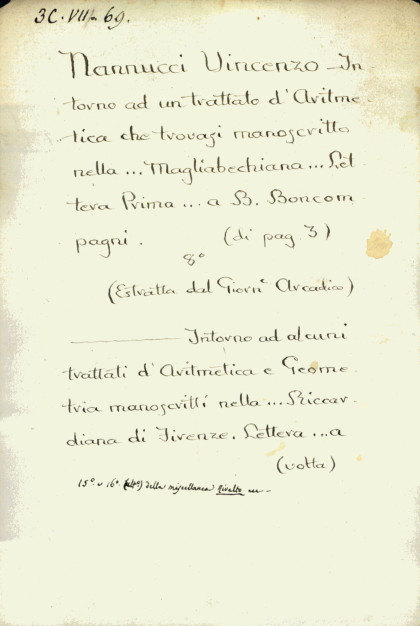 3C. VII. 69.
Nannucci Vincenzo – In
torno ad un trattato d'Aritme-
tica che trovasi manoscritto
nella ... Magliabechiana ... Let
tera Prima ... a B. Boncom
pagni. (di pag. 3)
8º
(Estratta dal Giorn.e Arcadico)
Intorno ad alcuni
trattati d'Aritmetica e Geome
tria manoscritti nella ... Riccar
diana di Firenze. Lettera ... a
(volta)
15º e 16º della miscellanea Rivalto